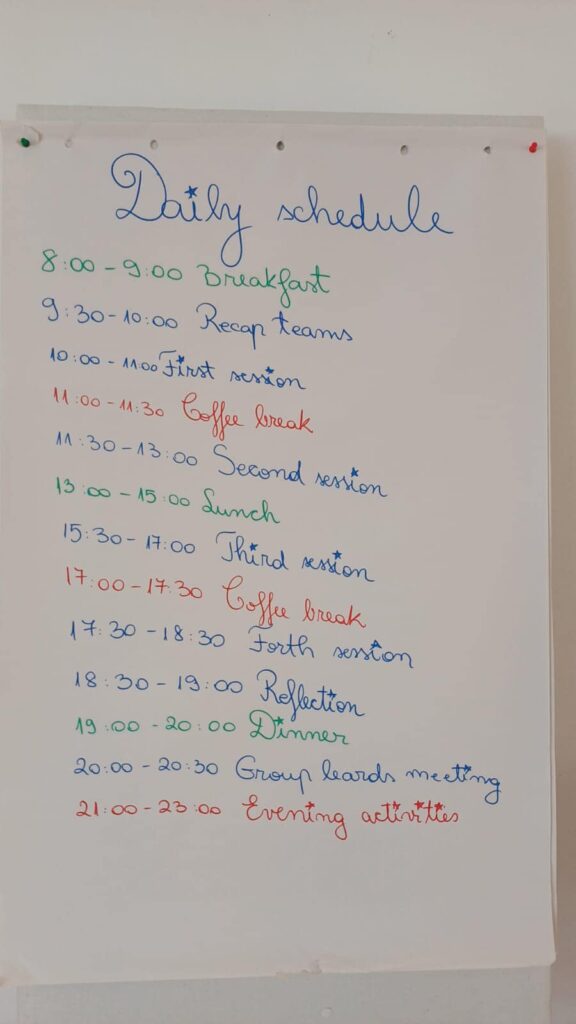 Daily schedule
8:00 - 9:00 Breakfast
9:30 - 10:00 Recap teams
10:00 - 11:00 First session
11:00 - 11:30 Coffee break
11:30 - 13:00 Second session
13:00 - 15:00 Lunch
15:30 - 17:00 Third session
17:00 - 17:30 Coffee break
17:30 - 18:30 Forth session
18:30 - 19:00 Reflection
19:00 - 20:00 Dinner
20:00 - 20:30 Group leards meeting
21:00 - 23:00 Evening activities